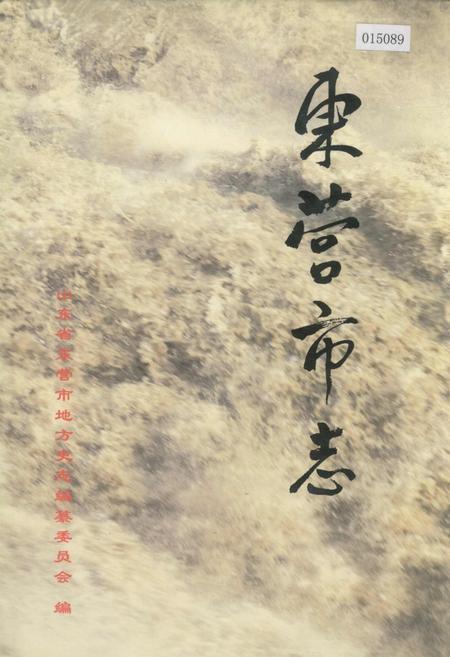 015089
東营市志
山东省东营市地方史志编纂委员会 编